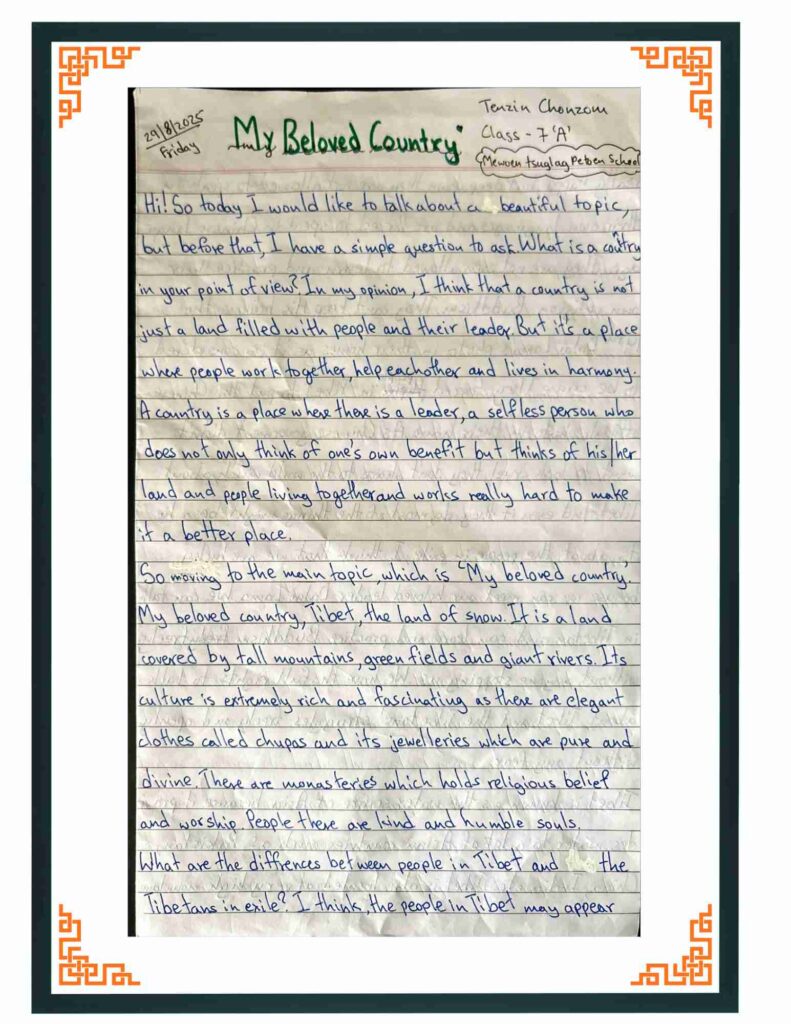 29/8/2025
Friday
"My Beloved Country"
Tenzin Chonzom
Class - 7 'A'
Mewoen tsuglag Petoen School
Hi! So today I would like to talk about a beautiful topic,
but before that, I have a simple question to ask. What is a coutry
in your point of view? In my opinion, I think that a country is not
just a land filled with people and their leader. But it's a place
where people work together, help eachother and lives in harmony.
A country is a place where there is a leader, a selfless person who
does not only think of one's own benefit but thinks of his/her
land and people living together and works really hard to make
it a better place.
So moving to the main topic, which is 'My beloved country'.
My beloved country, Tibet, the land of snow. It is a land
covered by tall mountains, green fields and giant rivers. Its
culture is extremely rich and fascinating as there are elegant
clothes called chupas and its jewelleries which are pure and
divine. There are monasteries which holds religious belief
and worship. People there are kind and humble souls.
What are the diffrences between people in Tibet and the
Tibetans in exile? I think, the people in Tibet may appear